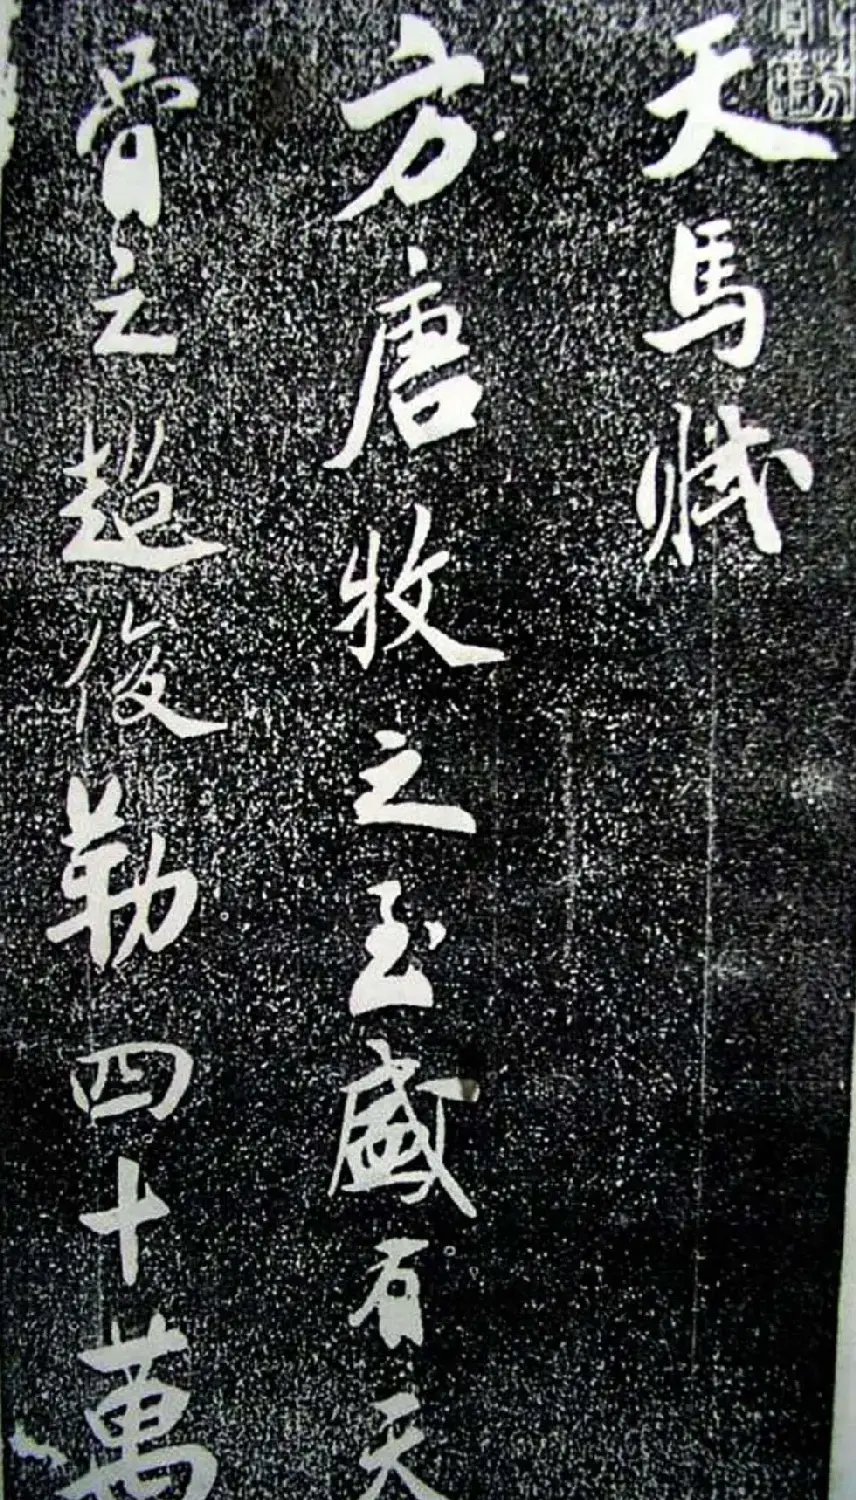 天馬賦
方唐牧之至盛有天
骨之超俊勒四十萬